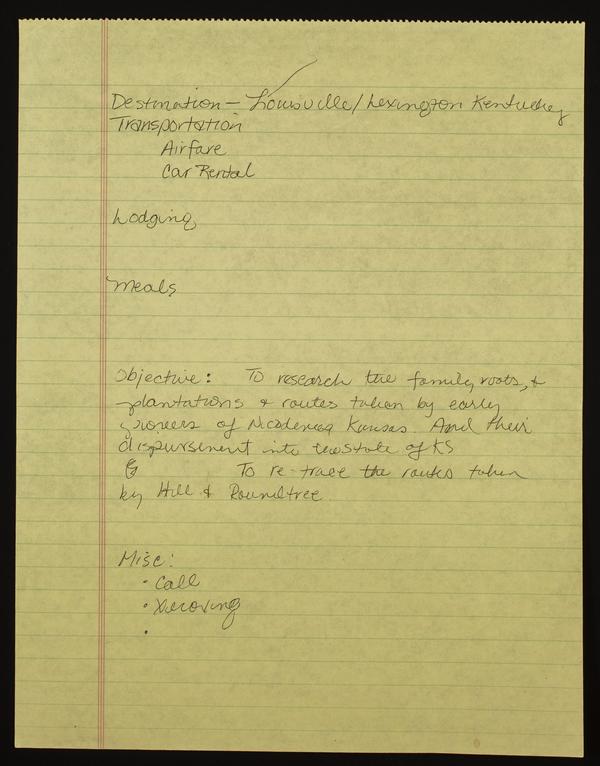 Destination - Louisville/Lexington Kentucky
Transportation
Airfare
Car Rental
Lodging
Meals
Objective: To research the family roots, &
plantations & routes taken by early
pioneers of Nicodemus Kansas. And their
dispursement into the State of KS
To re-trace the routes taken
by Hill & Roundtree
Misc:
• Call
• Xeroxing
•